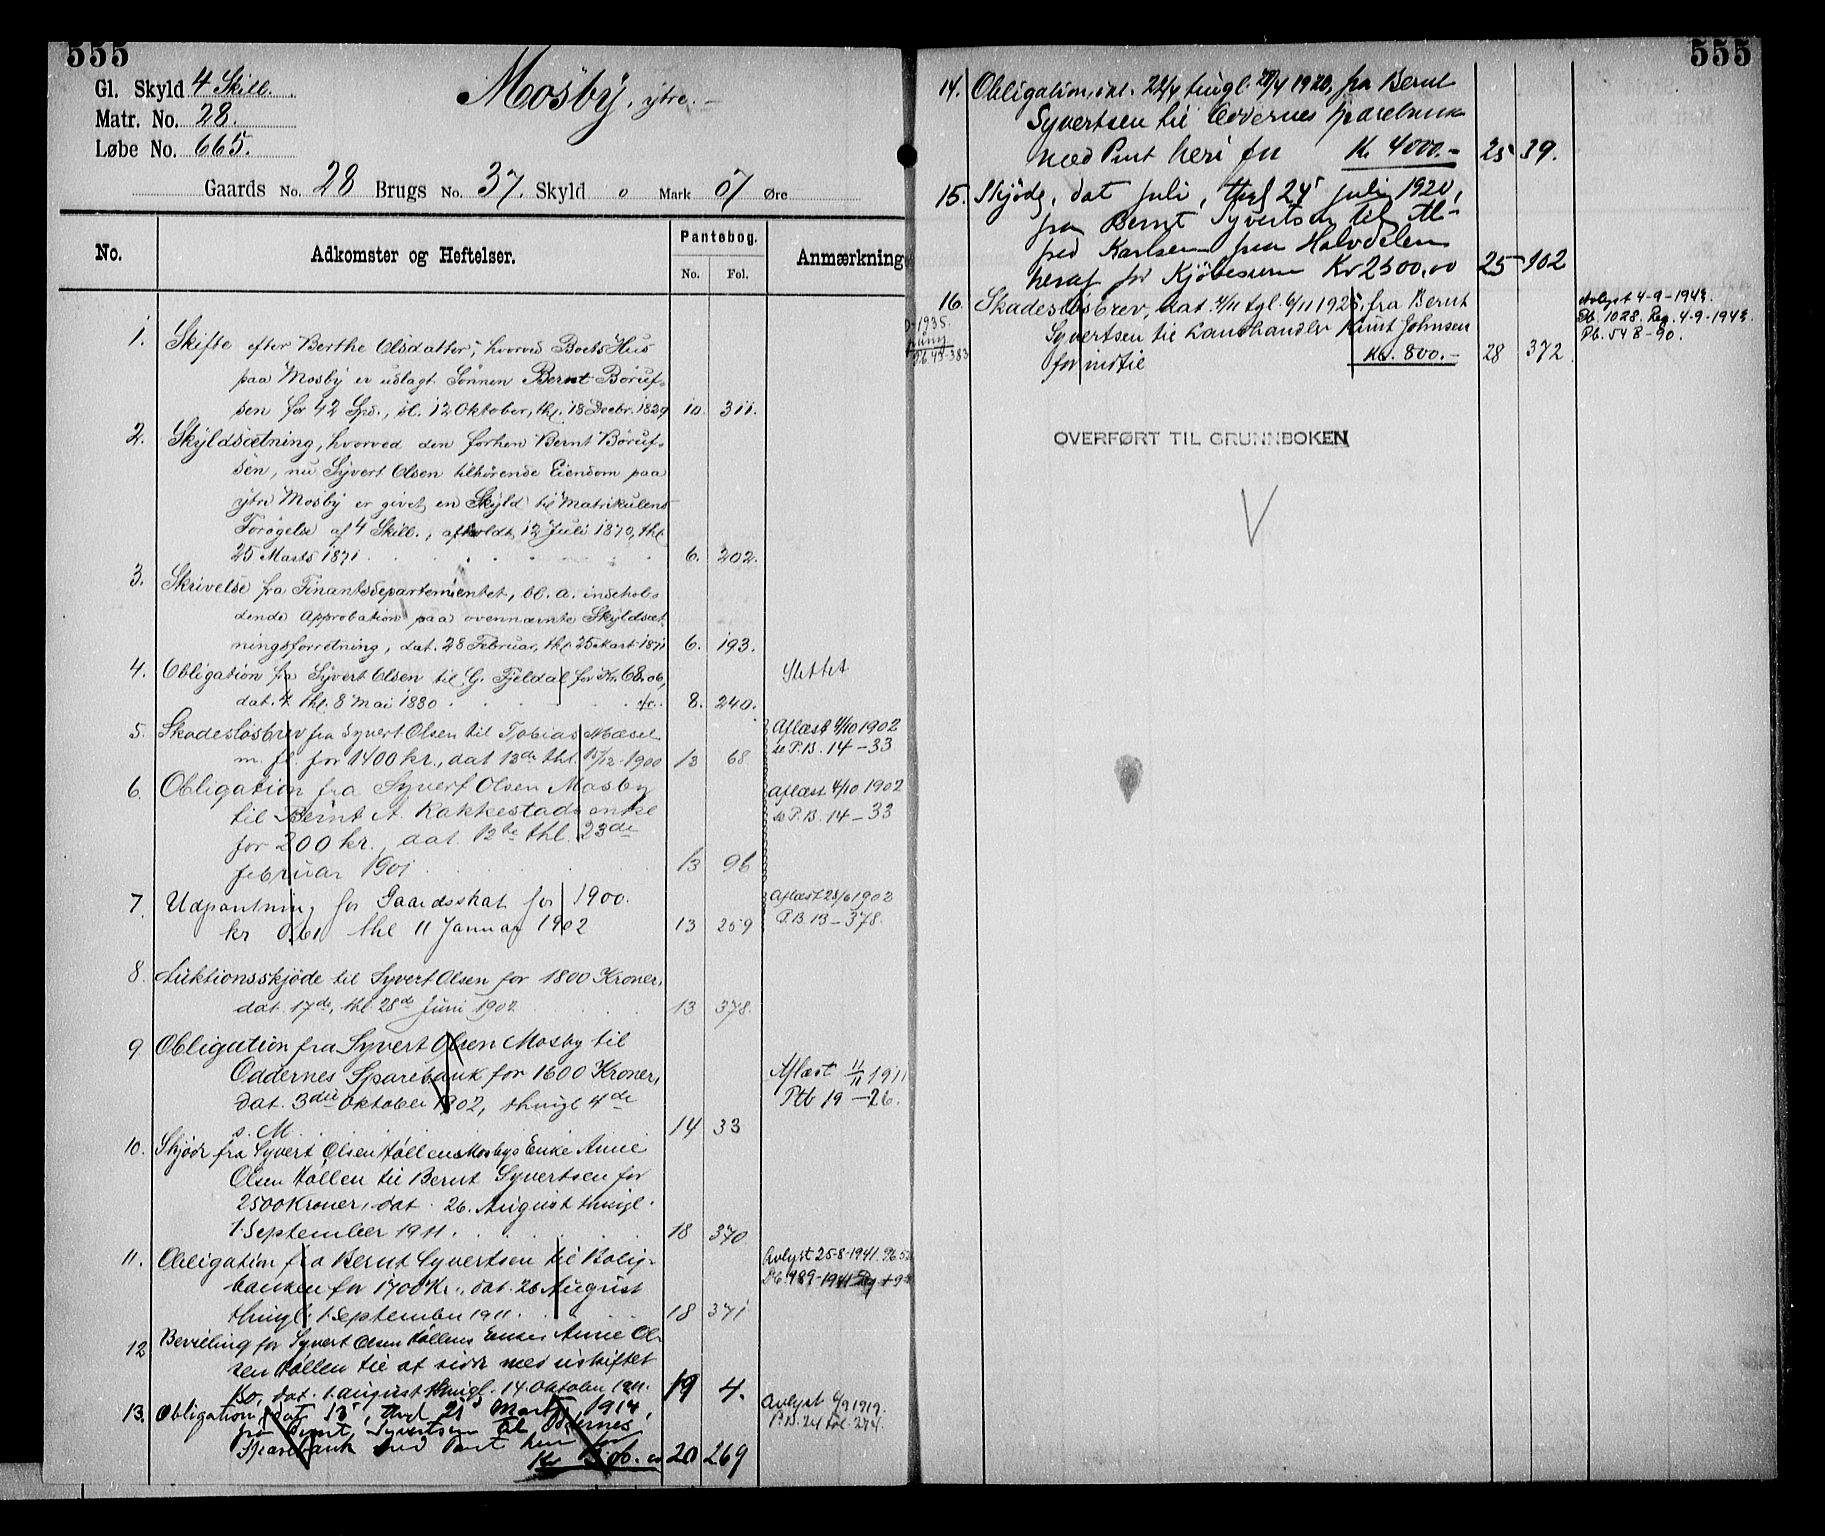 555
Gl. Skyld 4 Skill.
Matr. No. 28.
Løbe No. 665.
Mosby, ytre.
Gaards No. 28 Brugs No. 37. Skyld 0 Mark 07 Øre
No.
Adkomster og Heftelser.
Pantebog.
No. Fol.
Anmærkning
1. Skifte efter Berthe Olsdatter, hvorved Boets Hus
paa Mosby er udlagt Sønnen Bernt Børuf-
sen for 42 Spd., sl. 12 Oktober, thl. 18 Decbr. 1829 10. 311.
2. Skyldsætning, hvorved den forhen Bernt Børuf-
sen, nu Syvert Olsen tilhørende Eiendom paa
ytre Mosby er givet en Skyld til Matrikulens
Forøgelse af 4 Skill., afholdt 12 Juli 1870, thl.
25 Marts 1871 6. 202.
3. Skrivelse fra Finantsdepartementet, bl. a. indehol-
dende Approbation paa ovennævnte Skyldsæt-
ningsforretning, dat. 28 Februar, thl. 25 Mart 1871 6. 193.
4. Obligation fra Syvert Olsen til G. Fjeldal for Kr. 68.06,
dat. 4 thl. 8 Mai 1880 8. 240.
Slettet
5. Skadesløsbrev fra Syvert Olsen til Tobias Mæsel
m. fl. for 1400 kr., dat 13de thl. 15/12 1900 13 68
Aflæst 4/10 1902
se P.B. 14-33
6. Obligation fra Syvert Olsen Mosby
til Bernt A. Rakkestads enke
for 200 kr., dat. 12te thl. 23de
februar 1901 13 96
Aflæst 4/10 1902
se P.B. 14-33
7. Udpantning for Gaardsskat for 1900.
kr 0,61, thl 11 Januar 1902 13 259
Aflæst 28/6 1902
P.B. 13-378.
8. Auktionsskjøde til Syvert Olsen for 1800 Kroner,
dat. 17de, thl. 28d Juni 1902 13 378.
9. Obligation fra Syvert Olsen Mosby til
Oddernes Sparebank for 1600 Kroner,
dat. 3die Oktober 1902, thingl 4de
s. M. 14 33
Aflæst 11/11 1911
Ptb 19-26.
10. Skjøde fra Syvert Olsen Høllen Mosbys Enke Anne
Olsen Høllen til Bernt Syvertsen for
2500 Kroner, dat. 26. August thingl.
1. September 1911. 18 370
11. Obligation fra Bernt Syvertsen til Bolig-
banken for 1700 Kr., dat. 26 August
thingl. 1. September 1911. 18 371
Avlyst 25-8-1941. Pb 52
Db. 989-1941
12 Bevilling for Syvert Olsen Høllens Enke Anne Ol-
sen Høllen til at sidde med uskiftet
Bo, dat. 1. august thingl. 14. Oktober 1911. 19 4.
13. Obligation, dat 13', thgl 21d Marts, 1914,
fra Bernt Syvertsen til Oddernes
Sparebank med Pant heri for
20 269
Avlyst 1919.
P.B. 24 fol. 274.
555
14. Obligation, dat. 22/4 tingl. 1920, fra Bernt
Syvertsen til Oddernes Sparebank
med Pant heri for Kr 4000.- 25 39.
15. Skjøde, dat juli, thgl 24' juli 1920,
fra Bernt Syvertsen til Al-
fred Karlsen paa Halvdelen
heraf for Kjøbesum Kr 2500,00 25 102
16. Skadesløsbrev, dat. 4/11 tgl. 6/11 1925, fra Bernt
Syvertsen til Landhandler Knut Johnsen
for indtil Kr. 800.- 28 372.
-1935.
Pb. 43-383
Avlyst 4-9-1943.
Db. 1028. Reg. 4-9-1943.
Pb. 54 B-90.
OVERFØRT TIL GRUNNBOKEN